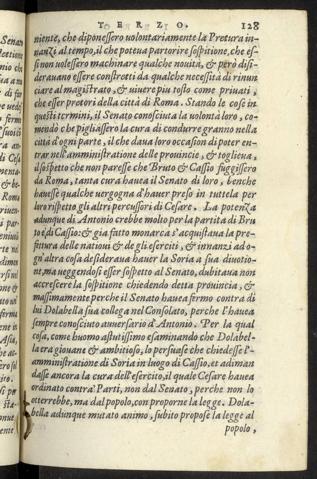 TERZO. 128
niente, che diponessero volontariamente la Pretura in-
nanzi al tempo, il che poteua partorire sospitione, che es-
si non uolessero machinare qualche nouità, & però disi-
derauano essere constretti da qualche necessità di rinun
ciare al magistrato, & uiuere piu tosto come priuati,
che esser pretori della città di Roma. Stando le cose in
questi termini, il Senato conosciuta la uolontà loro, co-
mendò che pigliassero la cura di condurre granno nella
città d'ogni parte, il che daua loro occasion di poter en-
trar nell'amministratione delle prouincie, & toglieua,
il sospetto che non paresse che Bruto & Cassio fuggissero
da Roma, tanta cura haueua il Senato di loro, benche
hauesse qualche uergogna d'hauer preso in tuttela per
loro rispetto gli altri percussori di Cesare. La potenza
adunque di Antonio crebbe molto per la partita di Bru
to e di Cassio: & gia fatto monarca s'acquistaua la pre-
fettura delle nationi & de gli eserciti, & innanzi ad o-
gn'altra cosa desideraua hauer la Soria a sua diuotio-
ne, ma ueggendosi esser sospetto al Senato, dubitaua non
accrescere la sospitione chiedendo detta prouincia, &
massimamente perche il Senato haueua fermo contra di
lui Dolabella sua collega nel Consolato, perche l'haueua
sempre conosciuto auuersario d'Antonio. Per la qual
cosa, come huomo astutissimo esaminando che Dolabel-
la era giouane & ambitioso, lo persuase che chiedesse l'a-
mministratione di Soria in luogo di Cassio, et adiman
dasse ancora la cura dell'esercito, il quale Cesare haueua
ordinato contra' Parti, non dal Senato, perche non lo
otterrebbe, ma dal popolo, con proporne la legge. Dola-
bella adunque mutato animo, subito propose la legge al
popolo,